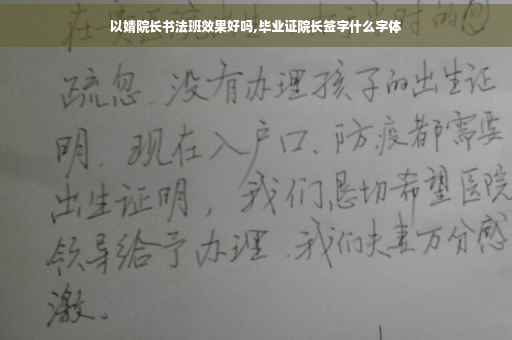 以靖院长书法班效果好吗,毕业证院长签字什么字体
疏忽.没有办理孩子的出生证
明.现在入户口、防疫都需要
出生证明,我们恳切希望医院
领导给予办理.我们夫妻万分感
激。